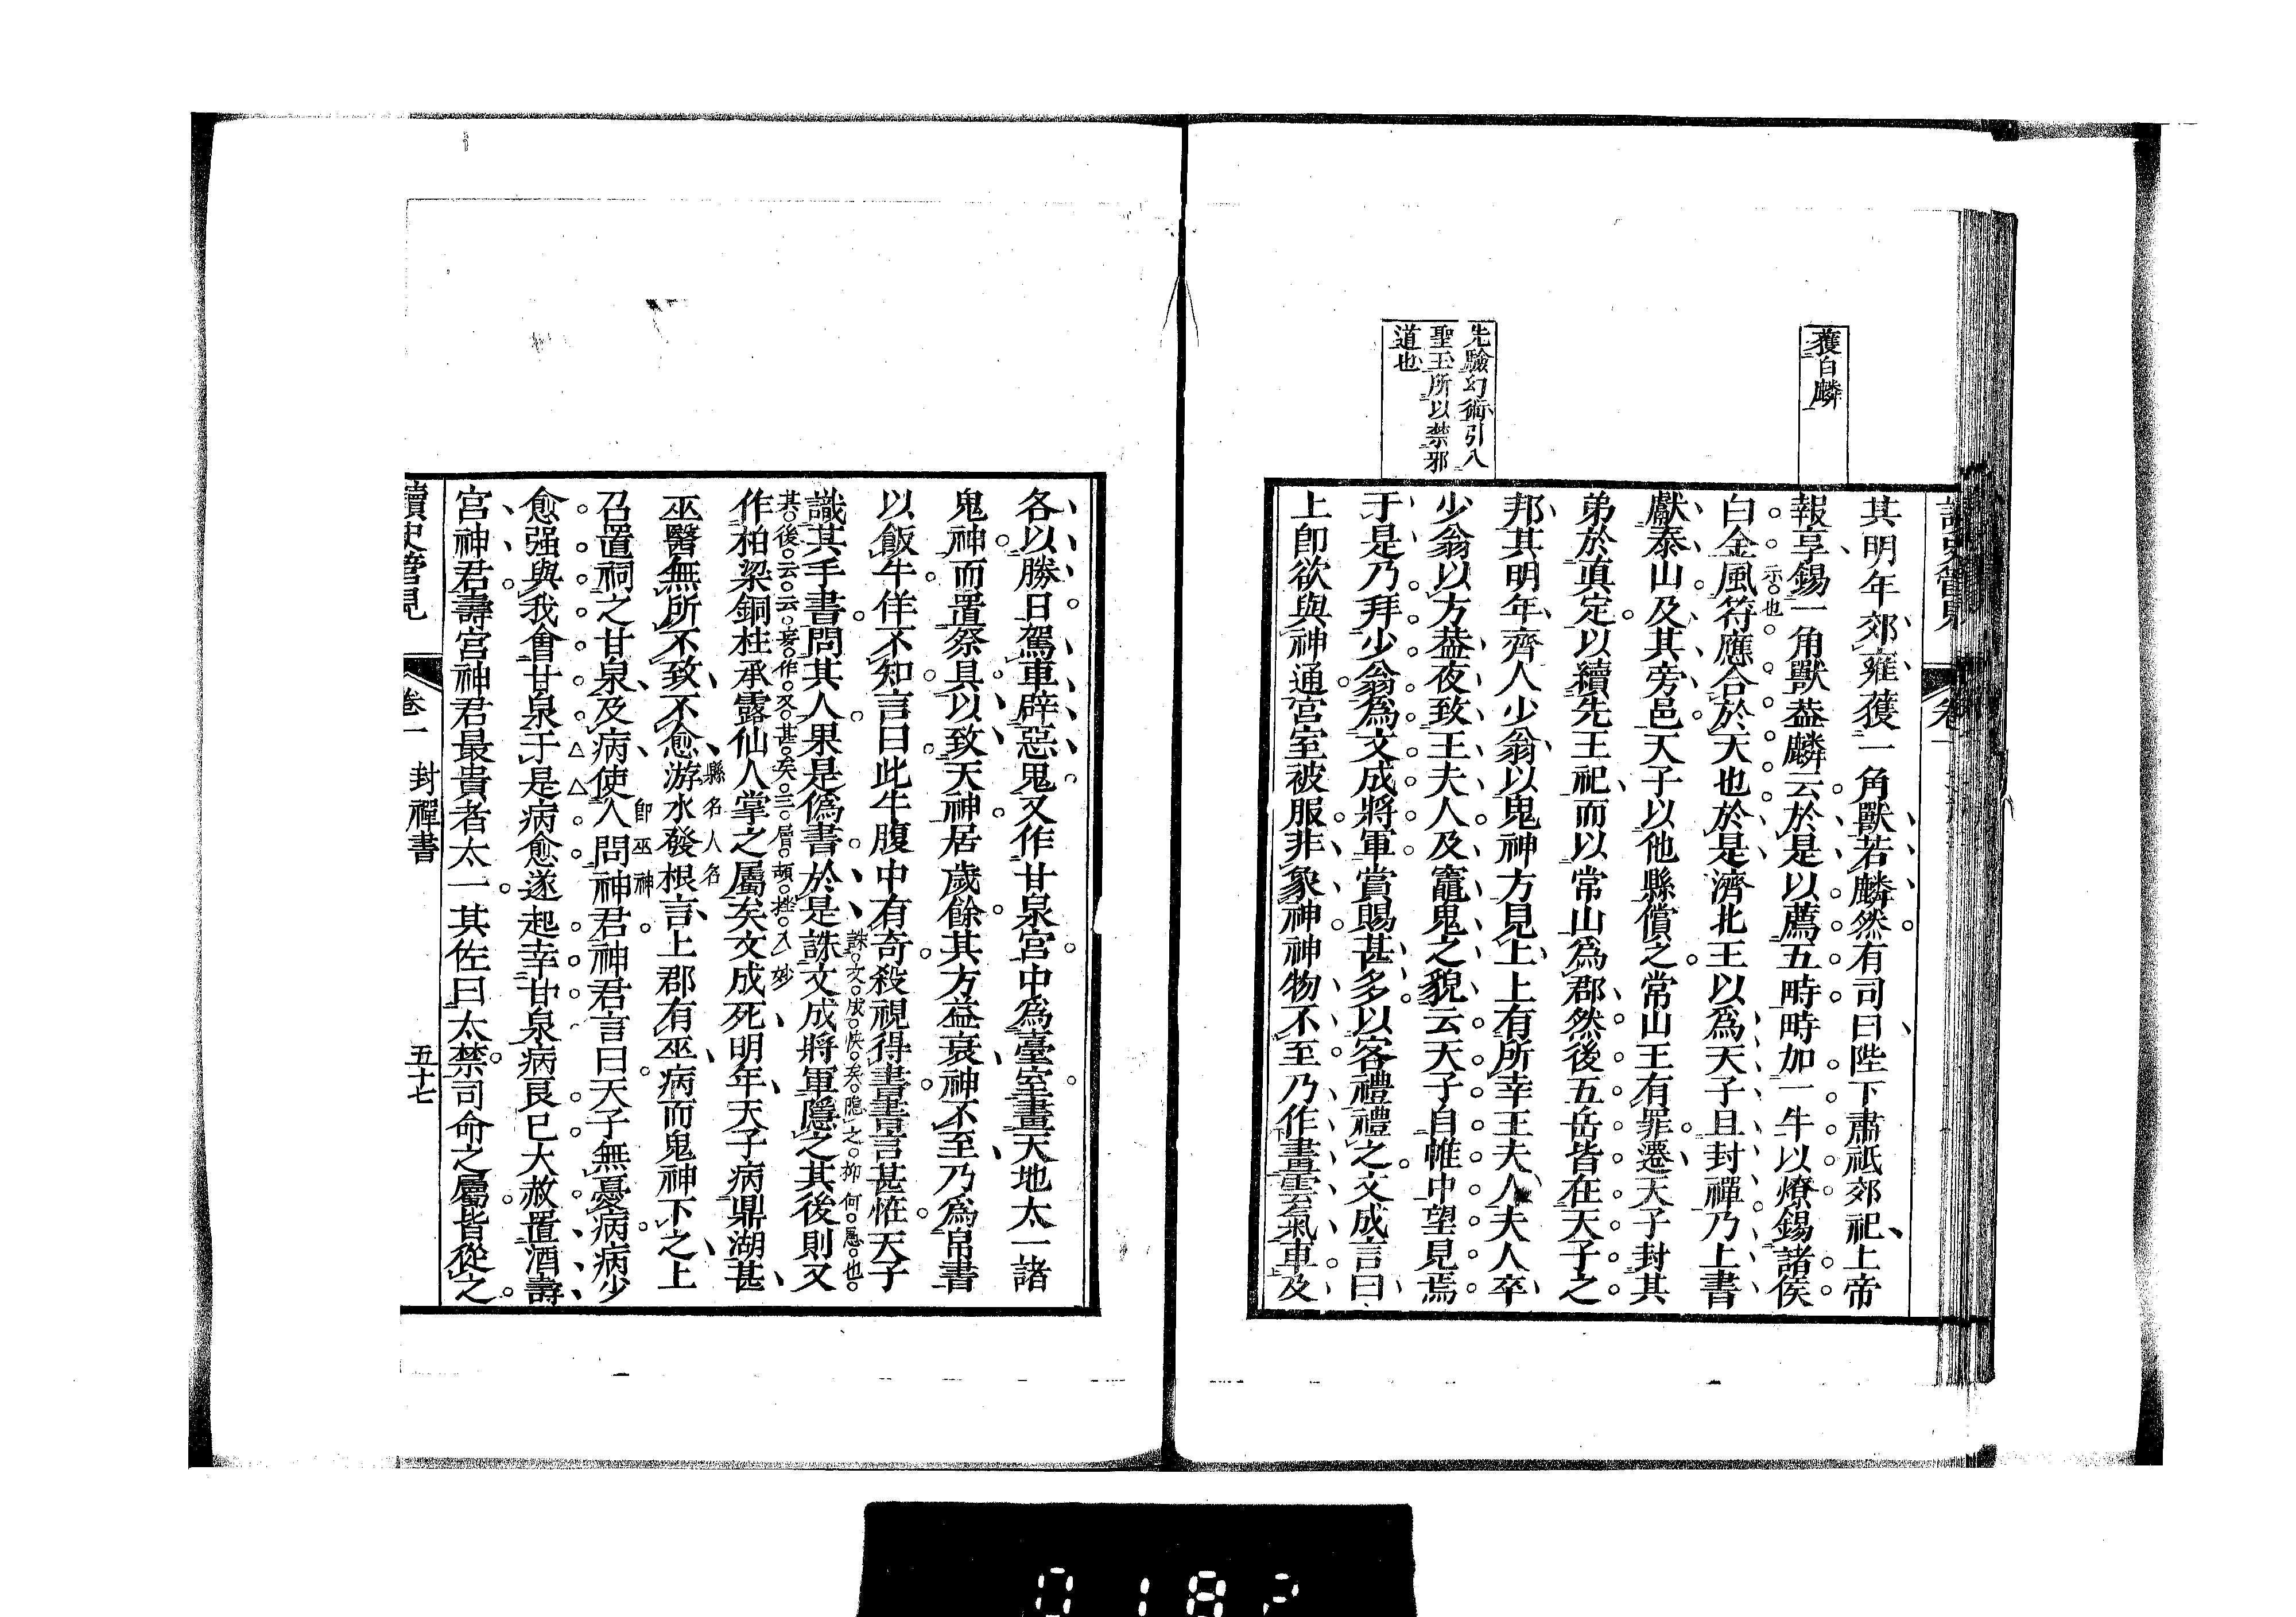 獲白麟
先驗幻術引入
聖王所以禁邪
道也
其明年郊雍獲一角獸若麟然有司曰陛下肅祗郊祀上帝
報享錫一角獸葢麟云於是以薦五畤畤加一牛以燎錫諸侯
示也
白金風符應合於天也於是濟北王以爲天子且封禪乃上書
獻泰山及其旁邑天子以他縣償之常山王有罪遷天子封其
弟於眞定以續先王祀而以常山爲郡然後五岳皆在天子之
邦其明年齊人少翁以鬼神方見上上有所幸王夫人夫人卒
少翁以方葢夜致王夫人及竈鬼之貌云天子自帷中望見焉
于是乃拜少翁爲文成將軍賞賜甚多以客禮禮之文成言曰
上卽欲與神通宮室被服非象神神物不至乃作畫雲氣車及
各以勝日駕車辟惡鬼又作甘泉宮中爲臺室畫天地太一諸
鬼神而置祭具以致天神居歲餘其方益衰神不至乃爲帛書
以飯牛佯不知言曰此牛腹中有奇殺視得書書言甚恠天子
識其手書問其人果是僞書於是誅文成將軍隱之其後則又
誅文成快矣隱之抑何愚也
其後云云
作柏梁銅柱承露仙人掌之屬矣文成死明年天子病鼎湖甚
巫醫無所不致不愈游水發根言上郡有巫病而鬼神下之上
縣名人名
召置祠之甘泉及病使人問神君神君言曰天子無憂病病少
卽巫神
愈强與我會甘泉于是病愈遂起幸甘泉病良已大赦置酒壽
宮神君壽宮神君最貴者太一其佐曰太禁司命之屬皆從之
讀史管見
卷一
封禪書
五十七